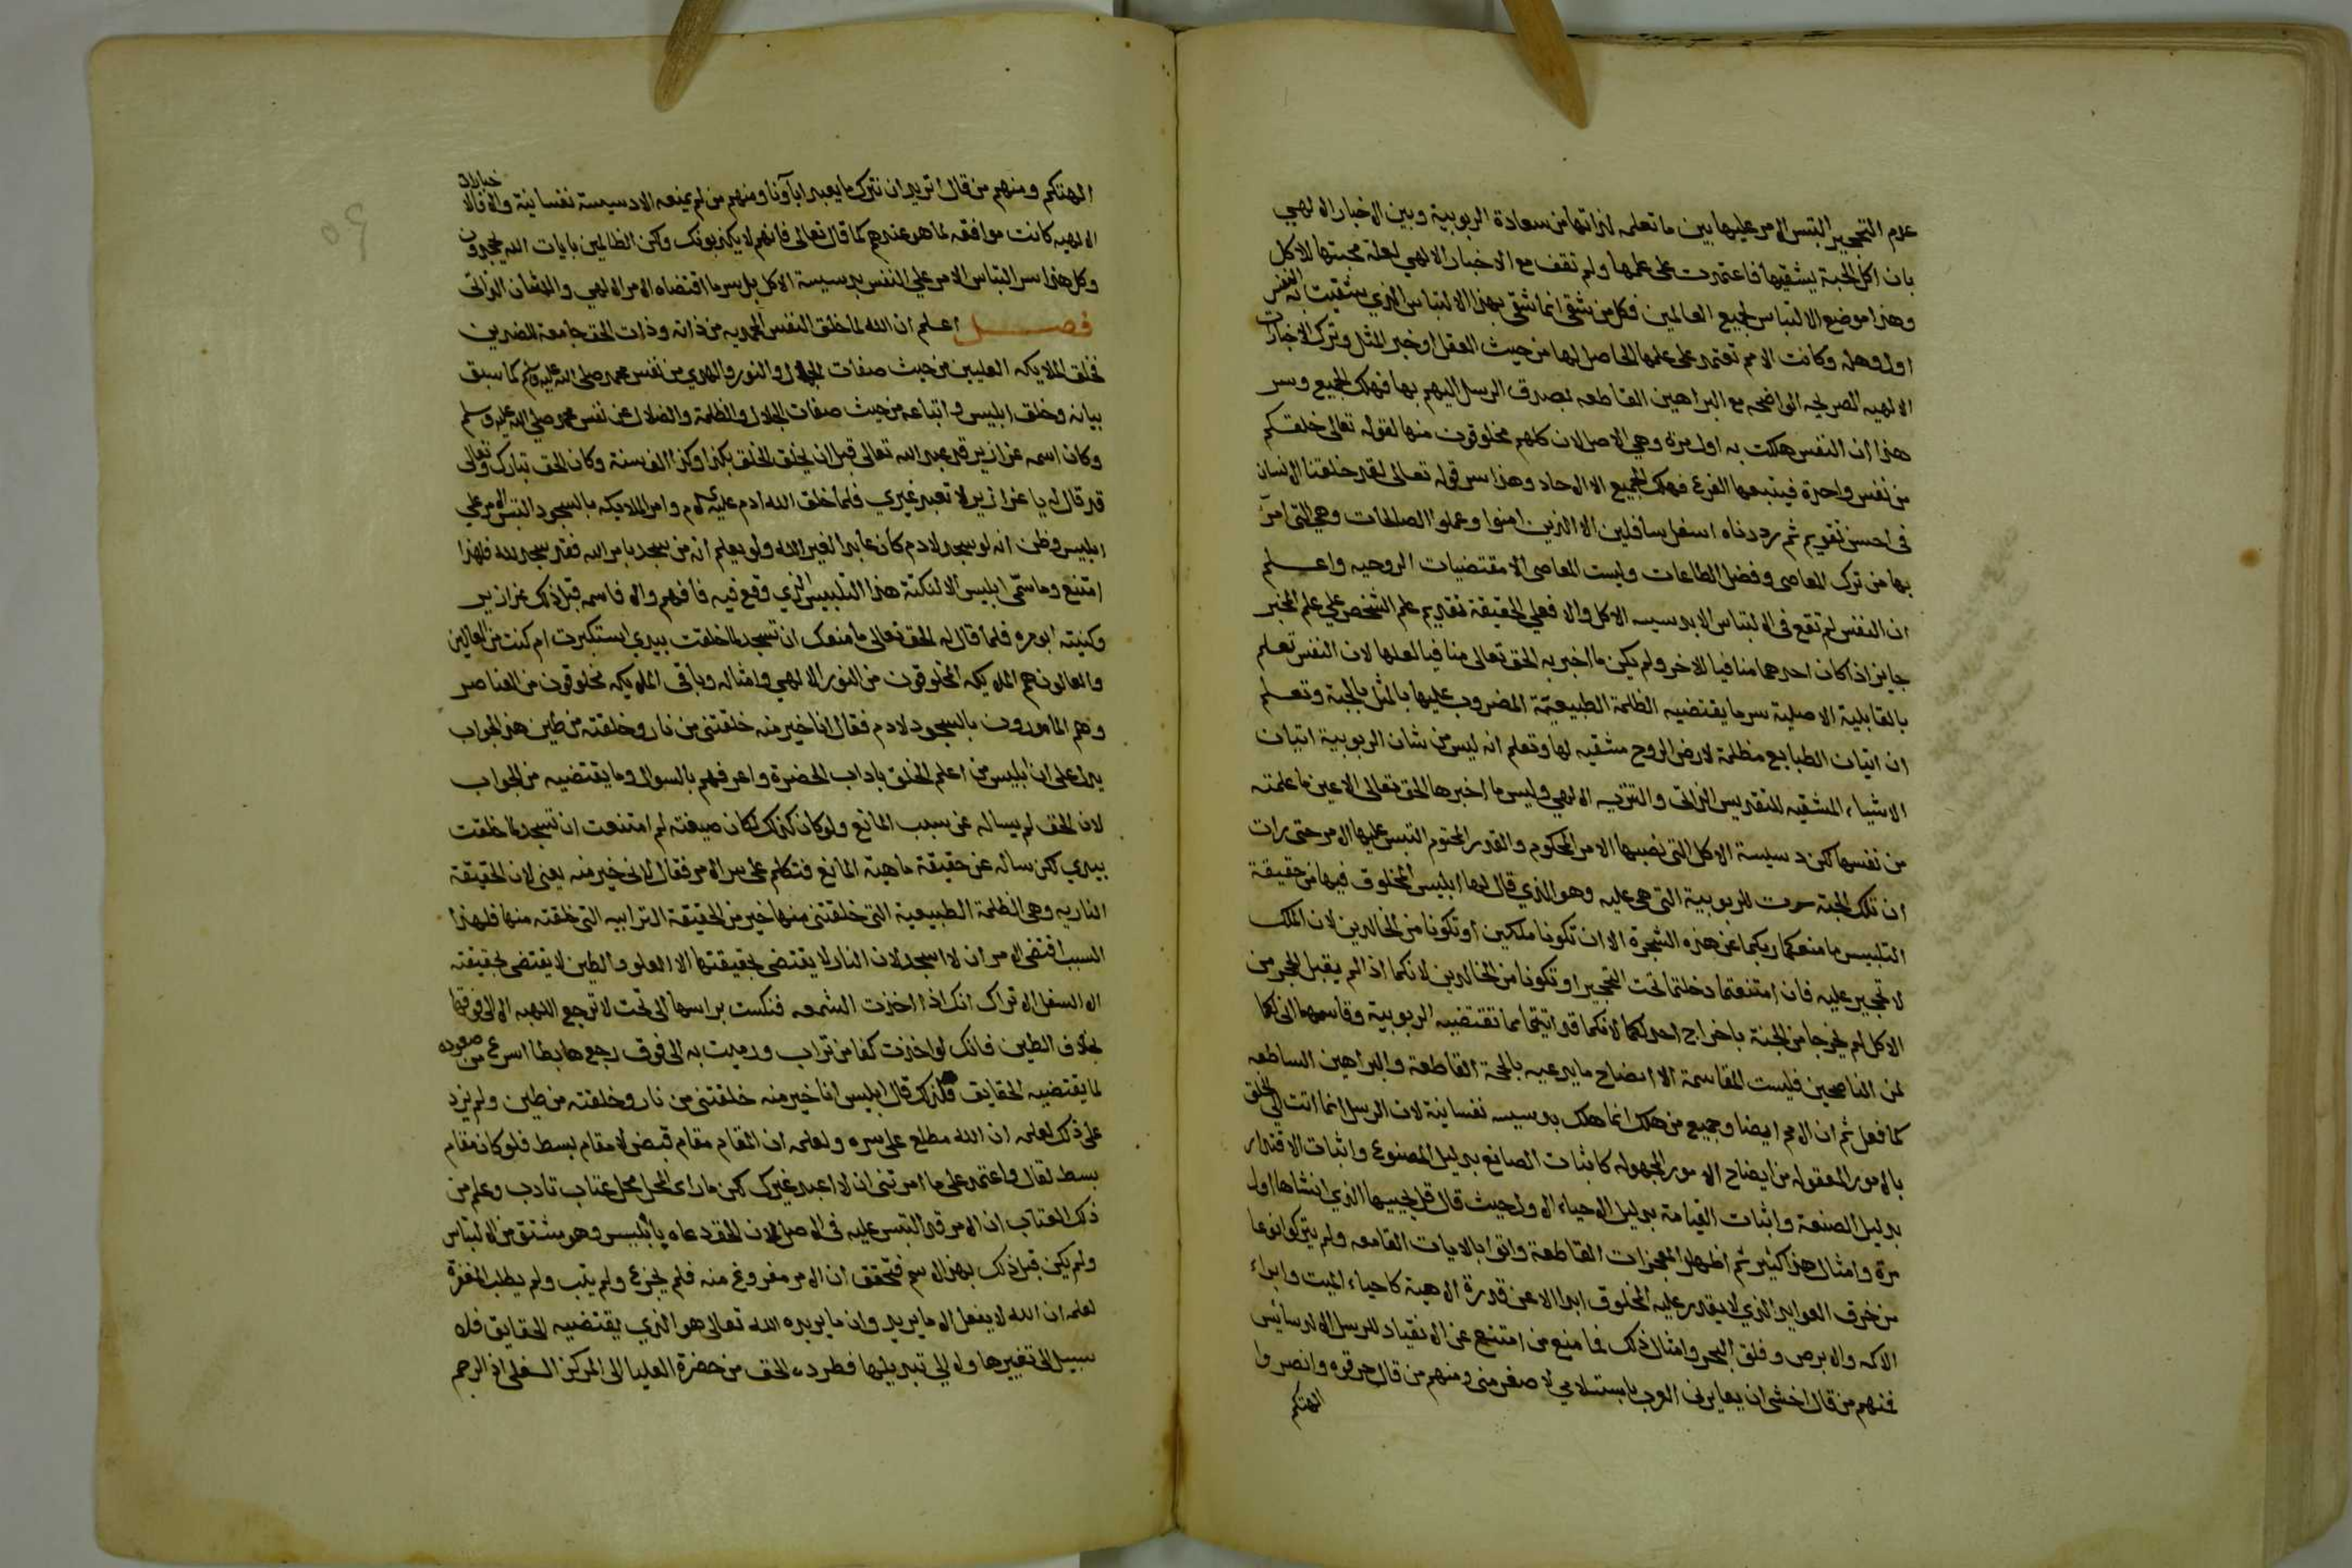 عدم التحجير التبس الامر عليها بين ما تعلمه لذاتها من سعادة الربوبية وبين الاخبار الالهي
بان اكل الحبة يشقيها فاعتمدت على علمها ولم تقف مع الاخبار الالهي لعلة محبتها للاكل
وهذا موضع الالتباس لجميع العالمين فكل من شقي انما شقي بهذا الالتباس الذي شقيت به النفس
اول وهلة وكانت الامم تعتمد على علمها الحاصل لها من حيث العقل او خبر المثل وترك الاخبارات
الالهيه الصريحه الواضحه مع البراهين القاطعه بصدق الرسل اليهم بها فهلك الجميع وسر
هذا ان النفس هلكت به اول مرة وهي الاصل لان كلهم مخلوقون منها لقوله تعالى خلقكم
من نفس واحدة فيتبعها الفرع فهلك الجميع الا الاحاد وهذا سر قوله تعالى لقد خلقنا الانسان
في احسن تقويم ثم رددناه اسفل سافلين الا الذين امنوا وعملوا الصالحات وهي التي امر
بها من ترك المعاصي وفضل الطاعات وليست المعاصي الا مقتضيات الروحيه واعلم
ان النفس لم تقع في الالتباس الا بدسيسه الاكل والا فعلى الحقيقة تقديم علم الشخص على علم المخبر
جايز اذا كان احدهما منافيا للاخر ولم يكن ما اخبر به الحق تعالى منافيا لعلمها لان النفس تعلم
بالقابلية الاصلية سر ما يقتضيه الظلمة الطبيعية المضروب عليها بالمثل بالحبة وتعلم
ان اتيات الطبايع مظلمة لارض الروح مشقيه لها وتعلم انه ليس من شان الربوبية اتيان
الاشياء المشقيه للتقديس الذاتي والتنزيه الالهي وليس ما اخبرها الحق تعالى الا عين ما علمته
من نفسها لكن دسيسة الاكل التي نصبها الامر المحكوم والقدر المحتوم التبس عليها الامر حتى رات
ان تلك الحبة للربوبية التي هي عليه وهو الذي قال لها ابليس المخلوق فيها من حقيقة
التلبيس ما منعكما ربكما عن هذه الشجرة الا ان تكونا ملكين او تكونا من الخالدين لان الملك
لا تحجير عليه فان امتنعتما دخلتما تحت التحجير او تكونا من الخالدين لانكما اذا لم يقبل الحجر من
الاكل لم يخرجا من الجنة باخراج احد لكما لانكما قد اتيتما مما تقتضيه الربوبية وقاسمهما اني لكما
لمن الناصحين فليست المقاسمة الا ايضاح ما يدعيه بالحجة القاطعة والبراهين الساطعه
كما فعل ثم ان الامم ايضا وجميع من هلك انما هلك بدسيسه نفسانية لان الرسل انما اتت الى الخلق
بالامور المعقوله من ايضاح الامور المجهوله كاثبات الصانع بدليل المصنوع واثبات الاقتدار
بدليل الصنعة واثبات القيامة بدليل الاحياء الاول حيث قال قل يحييها الذي انشاها اول
مرة وامثال هذا كثير ثم اظهروا المعجزات القاطعة واتوا بالايات القامعه ولم يتركوا نوعا
من خرق العوايد الذي لا يقدر عليه المخلوق ابدا الا عن قدرة الاهية كاحياء الميت وابراء
الاكمه والابرص وفلق البحر وامثال ذلك فما منع من امتنع عن الانقياد للرسل الا الدسائس
فمنهم من قال اخشى ان يعايرني العرب باستسلامي لاصغر مني ومنهم من قال حرقوه وانصروا
الهتكم
الهتكم ومنهم من قال اتريد ان نترك ما يعبد اباؤنا ومنهم من لم يمنعه الا دسيسة نفسانية والا فالا
خبارات
الالهيه كانت موافقه لما هو عندهم كما قال تعالى فانهم لا يكذبونك ولكن الظالمين بايات الله يجحدون
وكل هذا سر التباس الامر على النفس بدسيسة الاكل بل سر ما اقتضاه الامر الالهي والشان الذاتي
فصل اعلم ان الله لما خلق النفس المحمديه من ذاته وذات الحق جامعة للضدين
فخلق الملايكه العليين من حيث صفات الجمال والنور والهدي من نفس محمد صلى الله عليه وسلم كما سبق
بيانه وخلق ابليس واتباعه من حيث صفات الجلال والظلمة والضلال عن نفس محمد صلى الله عليه وسلم
وكان اسمه عزازير قد عبد الله تعالى قبل ان يخلق الخلق بكذا وكذا الف سنة وكان الحق تبارك وتعالى
قد قال له يا عزازير لا تعبد غيري فلما خلق الله ادم عليه السلام وامر الملايكه بالسجود التبس الامر على
ابليس وظن انه لو سجد لادم كان عابدا لغير الله ولو يعلم ان من سجد بامر الله فقد سجد لله فلهذا
امتنع وما سمي ابليس الا لنكتة هذا التلبيس الذي وقع فيه فافهم والا فاسمه قبل ذلك عزازير
وكنيته ابو مره فلما قال له الحق تعالى ما منعك ان تسجد لما خلقت بيدي استكبرت ام كنت من العالين
والعالون هم الملايكه المخلوقون من النور الالهي وامثاله وباقي الملايكه مخلوقون من العناصر
وهم المامورون بالسجود لادم فقال انا خير منه خلقتني من نار وخلقته من طين هذا الجواب
يدل على ان ابليس من اعلم الخلق باداب الحضرة واعرفهم بالسوال وما يقتضيه من الجواب
لان الحق لم يساله عن سبب المانع ولو كان كذلك لكان صيغته لم امتنعت ان تسجد لما خلقت
بيدي لكن ساله عن حقيقة ماهية المانع فتكلم على سر الامر فقال لاني خير منه يعني لان الحقيقة
الناريه وهي الظلمة الطبيعية التي خلقتني منها خير من الحقيقة الترابيه التي خلقته منها فلهذا
السبب اقتضى الامر ان لا اسجد لان النار لا يقتضى بحقيقتها الا العلو والطين لا يقتضى بحقيقته
الا السفل الا تراك انك اذا اخذت الشمعه فنكست براسها الى تحت لا ترجع اللهبه الا الى فوقها
بخلاف الطين فانك لو اخذت كفا من تراب ورميت به الى فوق رجع هابطا اسرع من صعوده
لما يقتضيه الحقايق فلذلك قال ابليس انا خير منه خلقتني من نار وخلقته من طين ولم يزد
على ذلك لعلمه ان الله مطلع على سره ولعلمه ان المقام مقام قبض لا مقام بسط فلو كان مقام
بسط لقال واعتمد على ما امرتني ان لا اعبد غيرك لكن لما راى المحل محل عتاب تادب وعلم من
ذلك العتاب ان الامر قد التبس عليه في الاصل لان الحق دعاه يا ابليس وهو مشتق من الالتباس
ولم يكن قبل ذلك بهذا الاسم فتحقق ان الامر مفروغ منه فلم يجزع ولم يتب ولم يطلب المغفرة
لعلمه ان الله لا يفعل الا ما يريد وان ما يريده الله تعالى هو الذي يقتضيه الحقايق فلا
سبيل الى تغييرها ولا الى تبديلها فطرده الحق من حضرة العليا الى المركز السفلى اذ الرجم